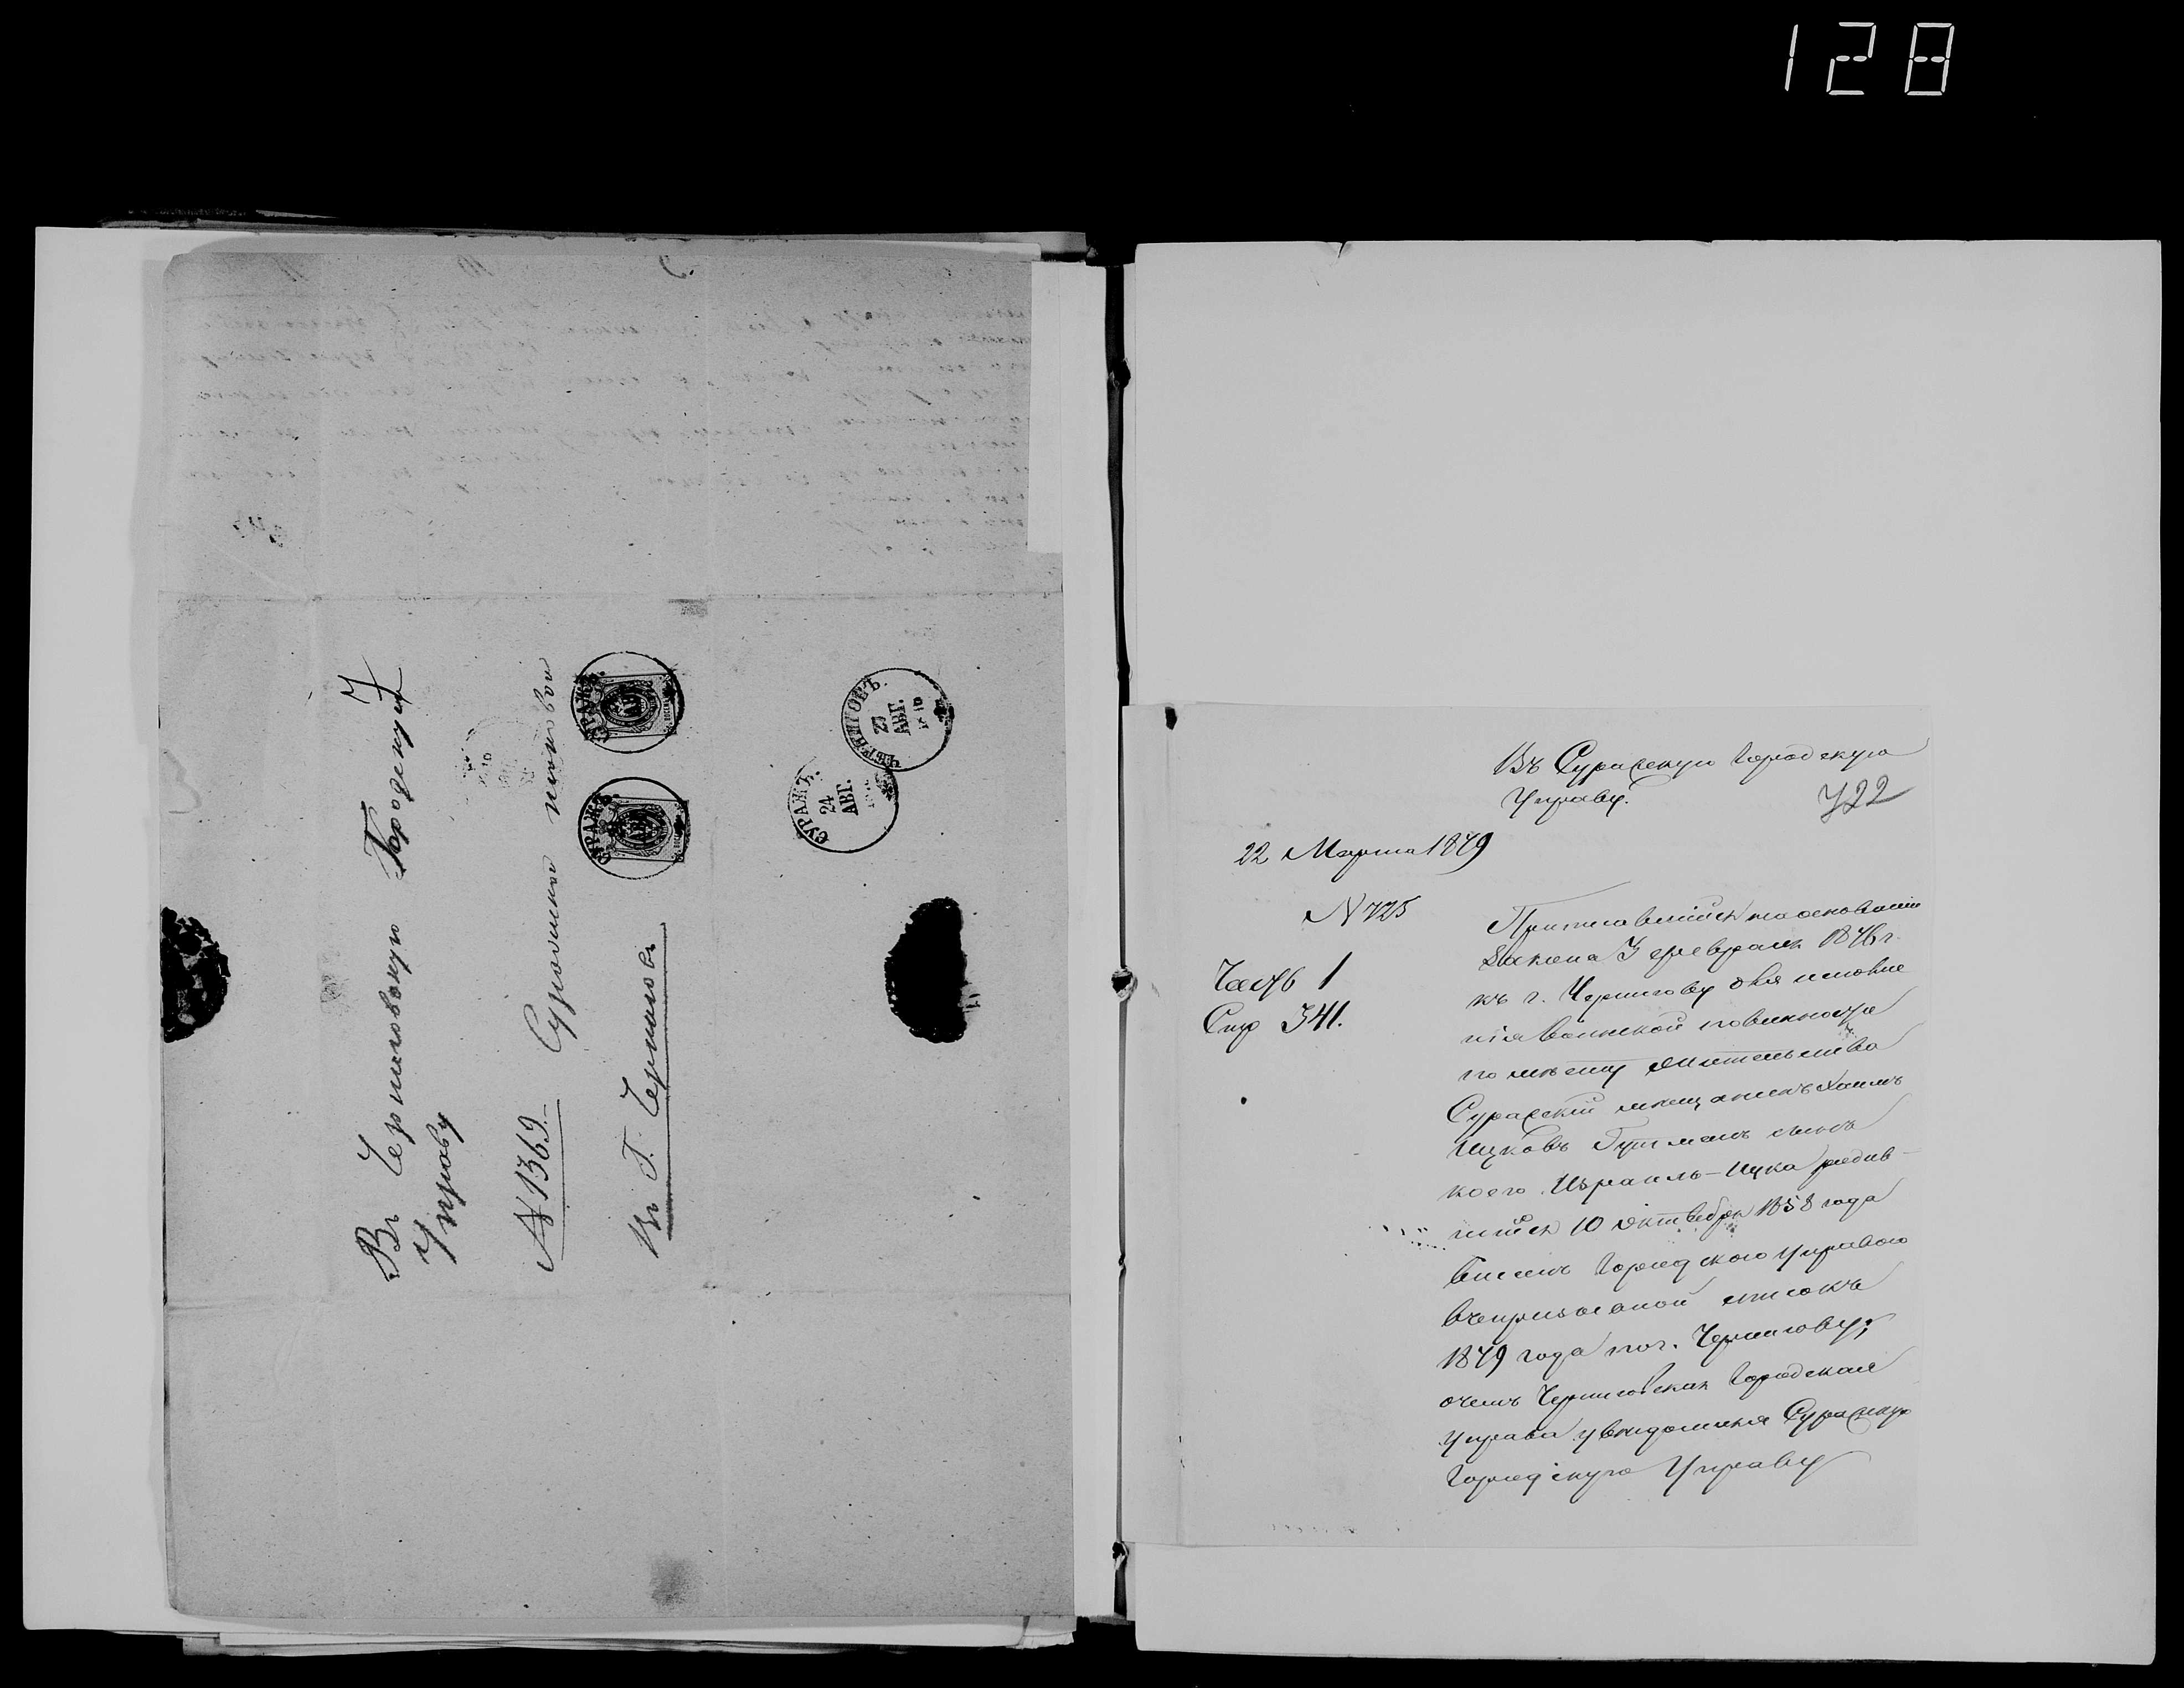 128
Въ Черниговскую Городскую
Управу
№ 1369
Суражское
Въ Г. Черниговъ
СУРАЖЪ.
СУРАЖЪ.
СУРАЖЪ.
24
АВГ.
ЧЕРНИГОВЪ.
АВГ.
Въ Суражскую Городскую
Управу.
722
22 Марта 1879
N 725
Часть 1
Стр 341.
Приписавшійся на основаніи
Закона 3 февраля 1876 г.
къ г. Чернигову для исполне
нія воинской повинности
по мѣсту жительства
Суражскій мѣщанинъ Хаимъ
Ицковъ Гутманъ сынъ
коего Израиль-Ицка родив-
шійся 10 Октября 1858 года
внесенъ Городскою Управою
въ призывной списокъ
1879 года по г. Чернигову;
о чемъ Черниговская Городская
Управа увѣдомляя Суражскую
Городскую Управу